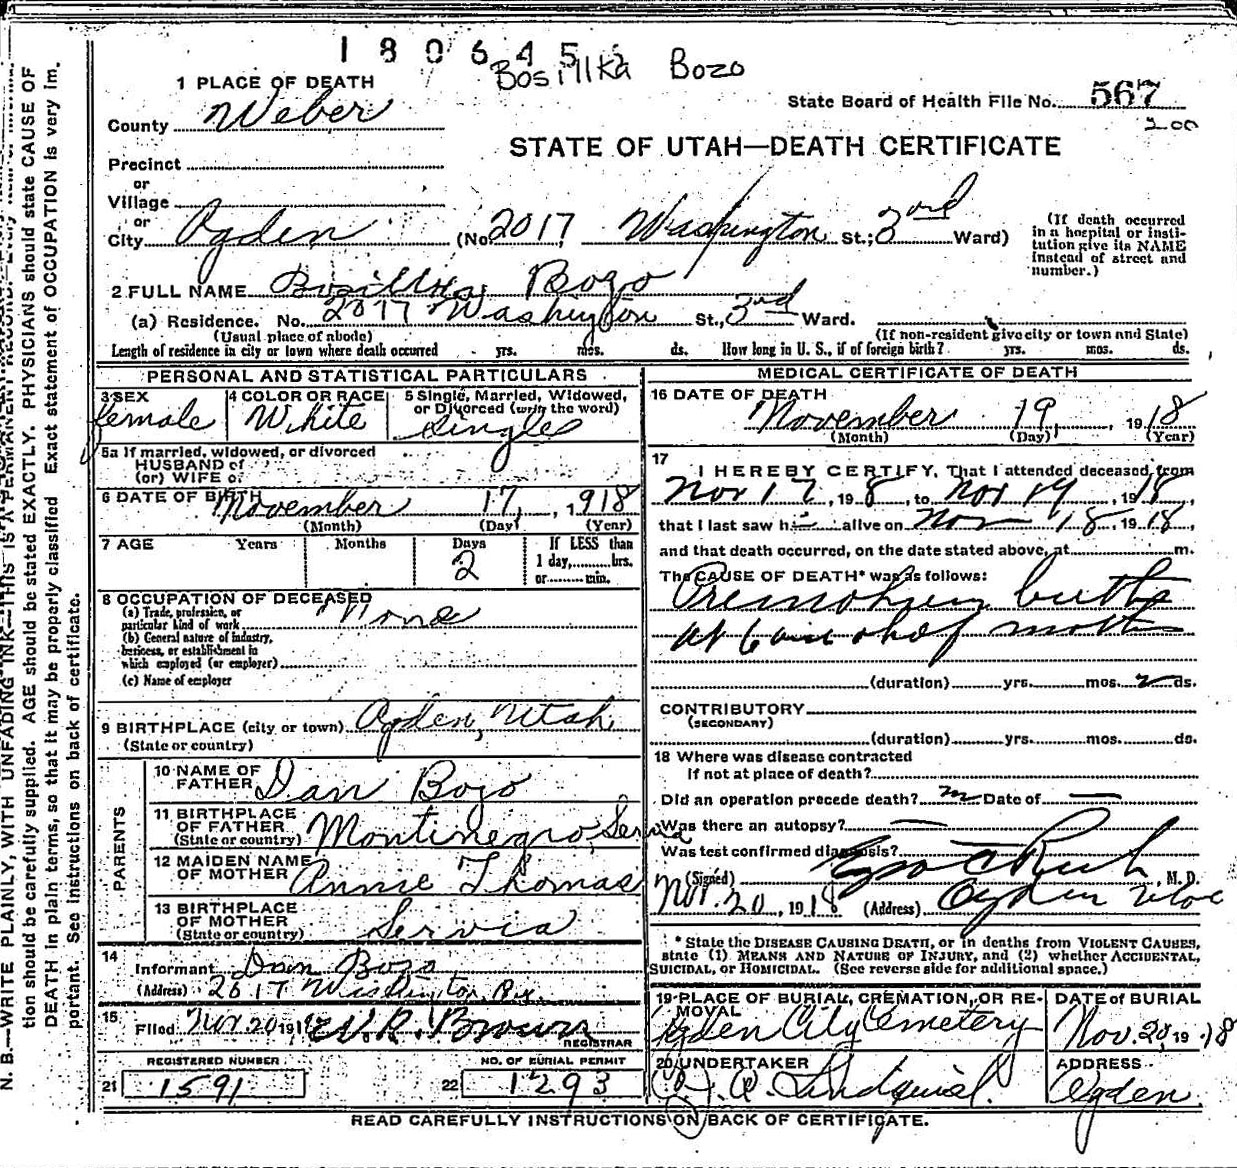 1 8 0 6 4 5 2
Bosillka Bozo
1 PLACE OF DEATH
State Board of Health File No. 567
200
County Weber
STATE OF UTAH—DEATH CERTIFICATE
Precinct
or
Village
or
City Ogden (No. 2017, Washington St.; 3rd Ward)
(If death occurred in a hospital or institution give its NAME instead of street and number.)
2 FULL NAME Bosillka Bozo
(a) Residence. No. 2017 Washington St., 3rd Ward.
(Usual place of abode) (If non-resident give city or town and State)
Length of residence in city or town where death occurred yrs. mos. ds. How long in U. S., if of foreign birth? yrs. mos. ds.
PERSONAL AND STATISTICAL PARTICULARS
3 SEX female
4 COLOR OR RACE White
5 Single, Married, Widowed, or Divorced (write the word) Single
5a If married, widowed, or divorced
HUSBAND of
(or) WIFE of
6 DATE OF BIRTH November 17, 1918
(Month) (Day) (Year)
7 AGE Years Months Days 2 If LESS than 1 day, hrs. or min.
8 OCCUPATION OF DECEASED
(a) Trade, profession, or particular kind of work None
(b) General nature of industry, business, or establishment in which employed (or employer)
(c) Name of employer
9 BIRTHPLACE (city or town) Ogden, Utah
(State or country)
PARENTS
10 NAME OF FATHER Dan Bozo
11 BIRTHPLACE OF FATHER (State or country) Montinegro, Servia
12 MAIDEN NAME OF MOTHER Annie Thomas
13 BIRTHPLACE OF MOTHER (State or country) Servia
14 Informant Dan Bozo
(Address) 2017 Washington
15 Filed Nov 20 1918
REGISTRAR
REGISTERED NUMBER
21 1591
NO. OF BURIAL PERMIT
22 1293
MEDICAL CERTIFICATE OF DEATH
16 DATE OF DEATH
November 19, 1918
(Month) (Day) (Year)
17
I HEREBY CERTIFY, That I attended deceased from
Nov 17, 198, to Nov 19, 1918,
that I last saw h alive on Nov 18, 1918,
and that death occurred, on the date stated above, at m.
The CAUSE OF DEATH* was as follows:
birth
at
(duration) yrs. mos. 2 ds.
CONTRIBUTORY
(SECONDARY)
(duration) yrs. mos. ds.
18 Where was disease contracted
if not at place of death?
Did an operation precede death? Date of
Was there an autopsy?
Was test confirmed diagnosis?
(Signed) , M. D.
Nov. 20, 1918 (Address) Ogden
* State the DISEASE CAUSING DEATH, or in deaths from VIOLENT CAUSES,
state (1) MEANS AND NATURE OF INJURY, and (2) whether ACCIDENTAL,
SUICIDAL, or HOMICIDAL. (See reverse side for additional space.)
19 PLACE OF BURIAL, CREMATION, OR REMOVAL
Ogden City Cemetery
DATE of BURIAL
Nov. 20, 1918
20 UNDERTAKER
ADDRESS
Ogden.
READ CAREFULLY INSTRUCTIONS ON BACK OF CERTIFICATE.
N. B.—WRITE PLAINLY, WITH UNFADING INK—THIS IS A PERMANENT RECORD.
tion should be carefully supplied. AGE should be stated EXACTLY. PHYSICIANS should state CAUSE OF
DEATH in plain terms, so that it may be properly classified. Exact statement of OCCUPATION is very im-
portant. See instructions on back of certificate.